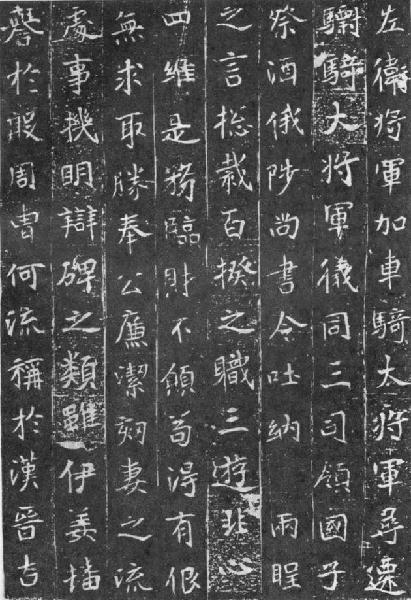 左衛將軍加車騎大將軍尋遷
驃騎大將軍儀同三司領國子
祭酒俄陟尚書令吐納兩
之言揔裁百揆之職三遊非心
四維是務臨財不傾苟得有佷
無求取勝奉公廉潔刻妻之流
處事機明辯碑之類雖伊姜播
譽於殷周曹何流稱於漢晉古